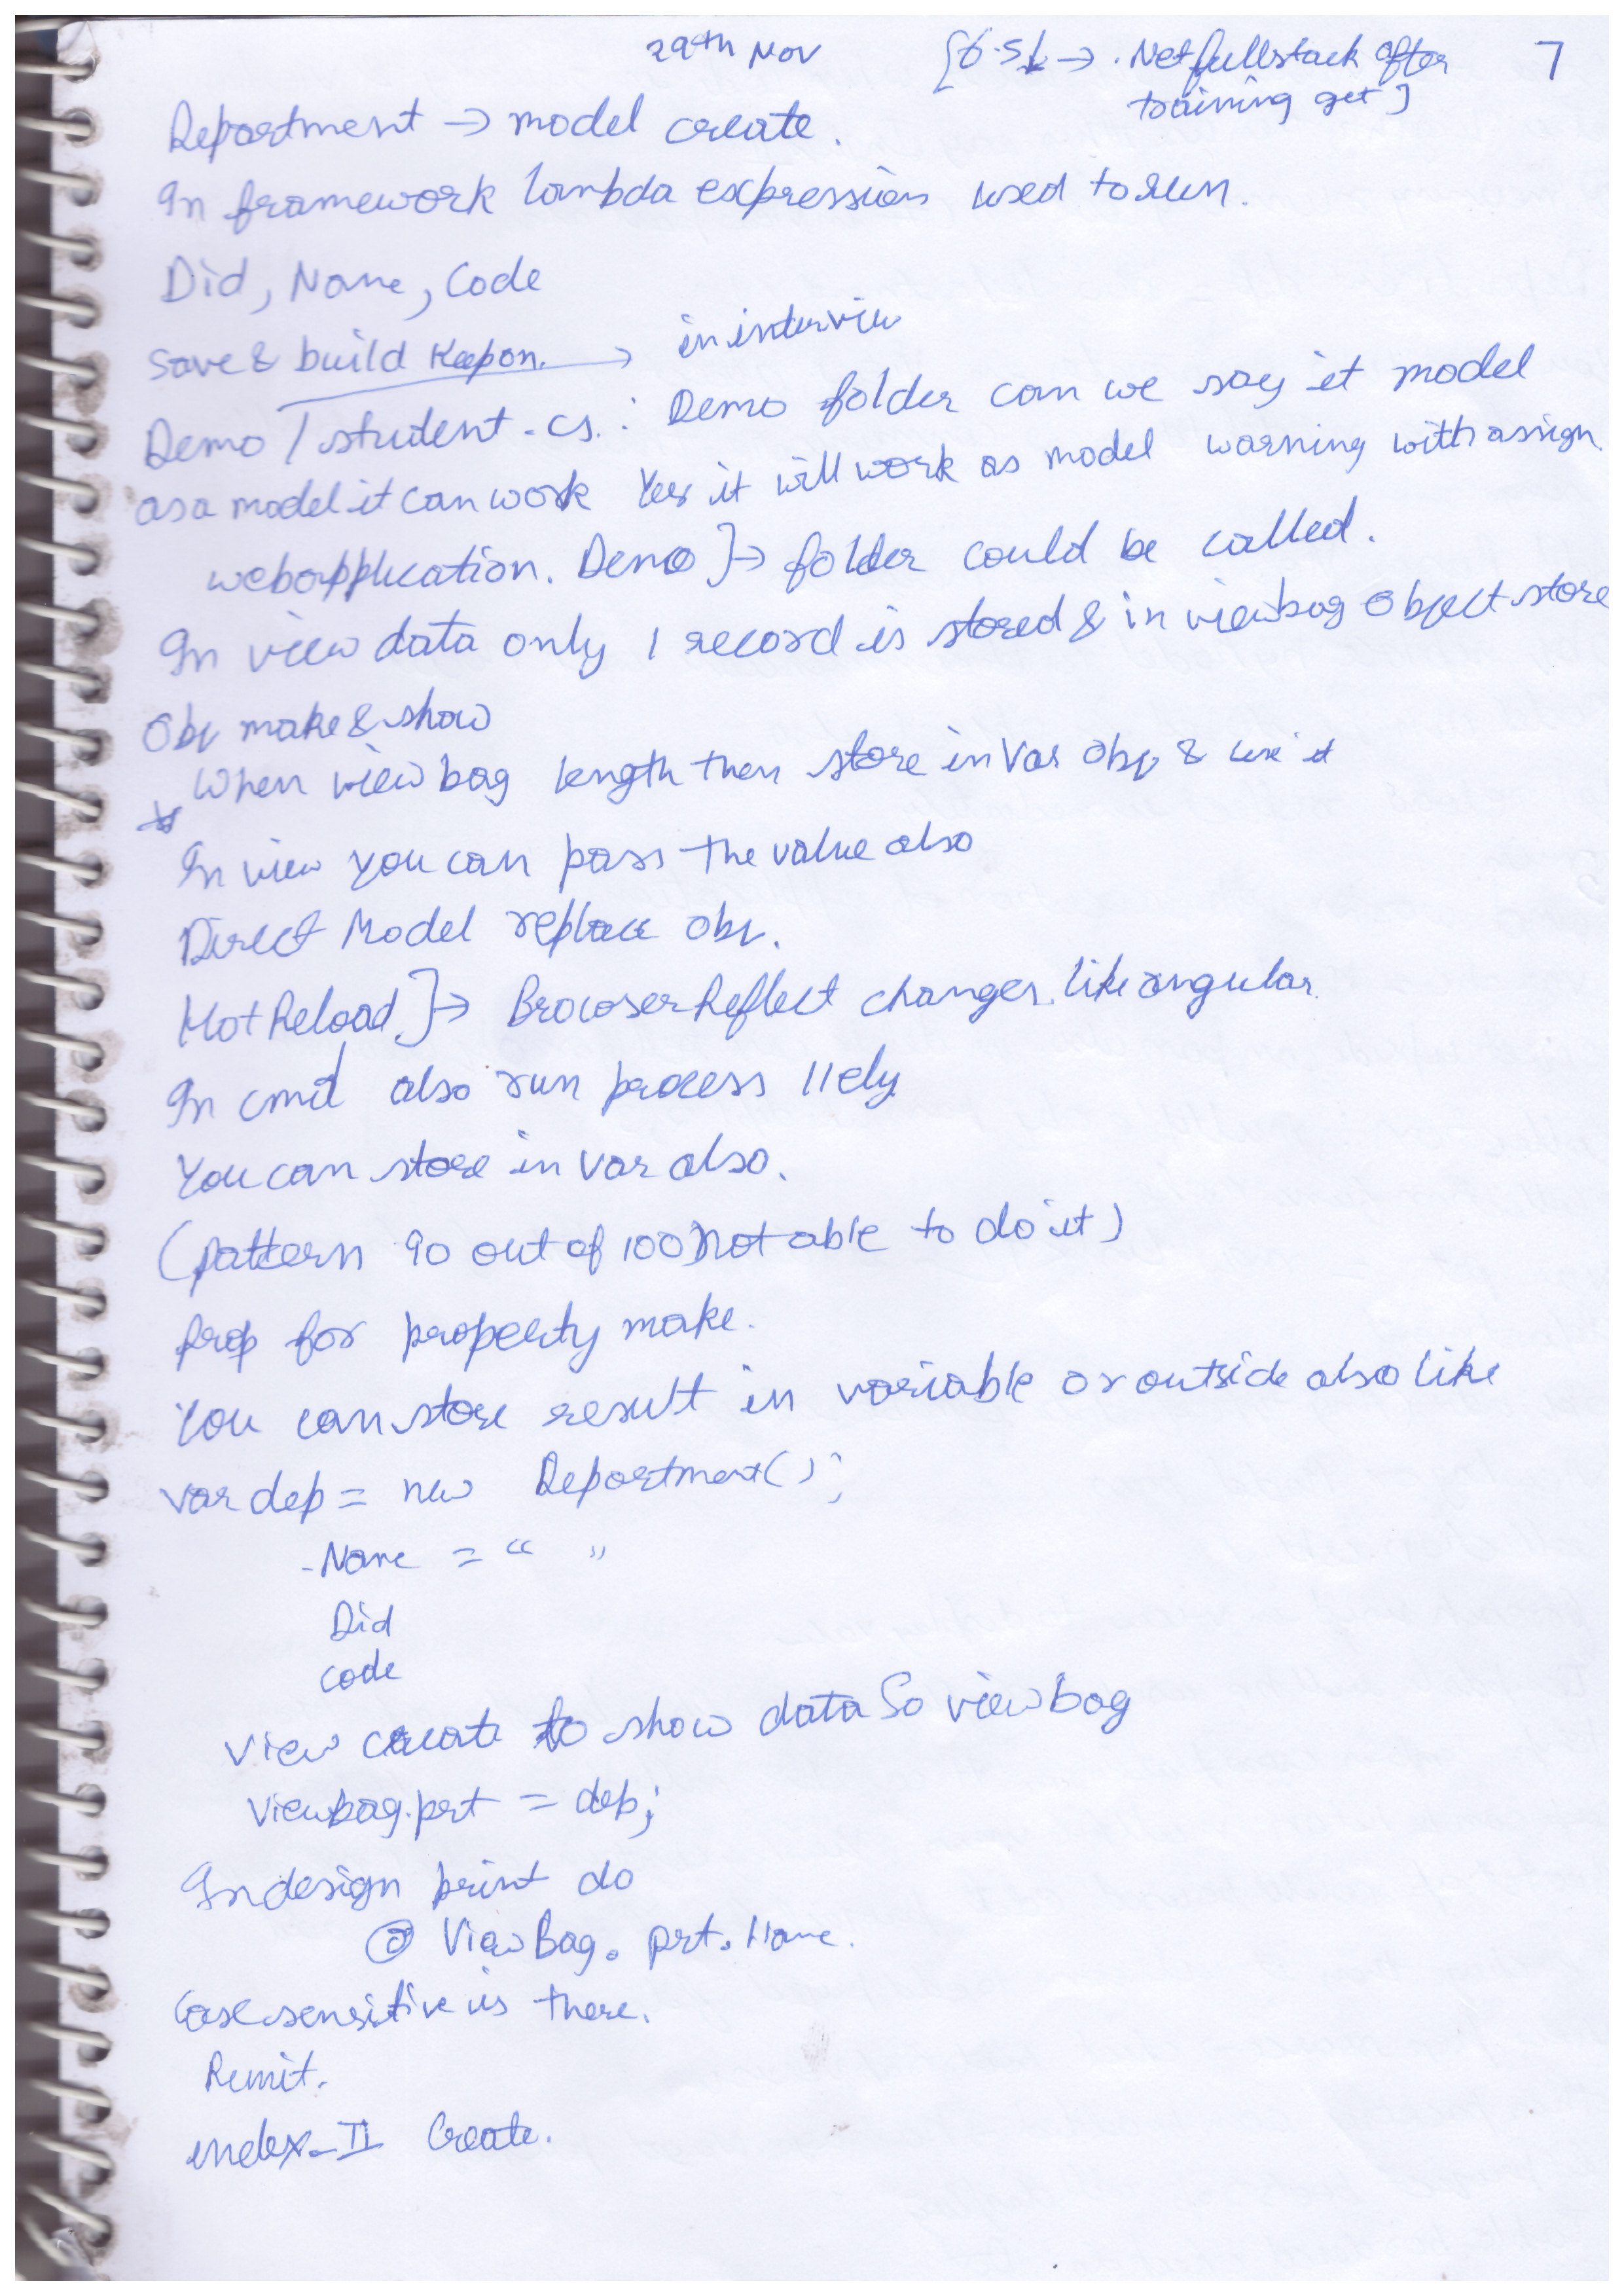 29th Nov
[6.5L → .Net fullstack after 7
training get]
Department → model create.
In framework lambda expression used to run.
Did, Name, Code
save & build keep on. → in interview
Demo / student.cs. : Demo folder can we say it model
as a model it can work Yes it will work as model warning with assign
webapplication. Demo ]→ folder could be called.
In view data only 1 record is stored & in viewbag object store
Obj make & show
When view bag length then store in Var obj & use it
In view you can pass the value also
Direct Model replace obj.
HotReload ]→ Browser Reflect changes like angular.
In cmd also run process llely
You can store in var also.
(pattern 90 out of 100) not able to do it)
prop for property make.
You can store result in variable or outside also like
var dep = new Department();
-Name = " "
Did
code
View create to show data So viewbag
Viewbag.prt = dep;
In design print do
@ ViewBag. prt. Name.
Case sensitive is there.
index-II Create.